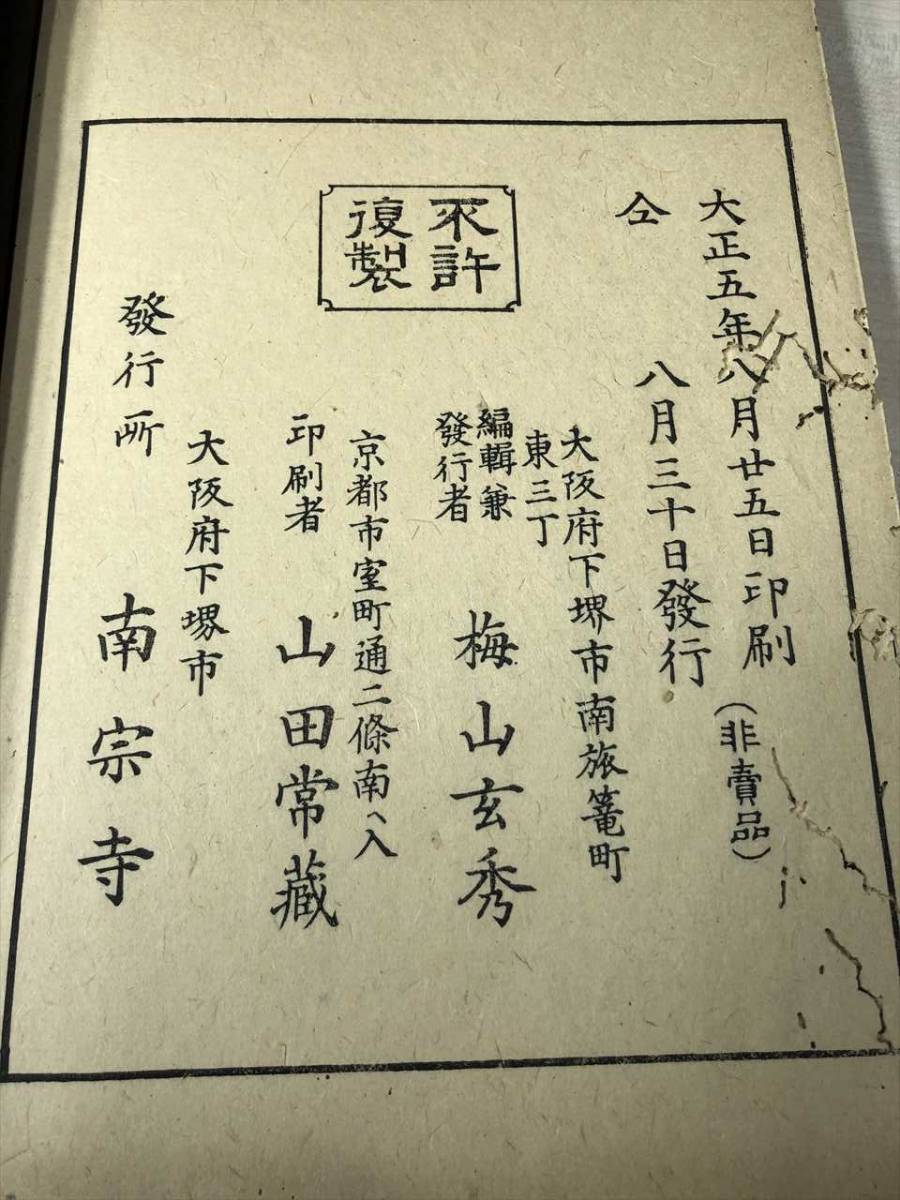 大正五年八月廿五日印刷
仝 八月三十日發行
（非賣品）
不許
復製
大阪府下堺市南旅篭町
東三丁
編輯兼
發行者 梅山玄秀
京都市室町通二條南へ入
印刷者 山田常藏
大阪府下堺市
發行所 南宗寺